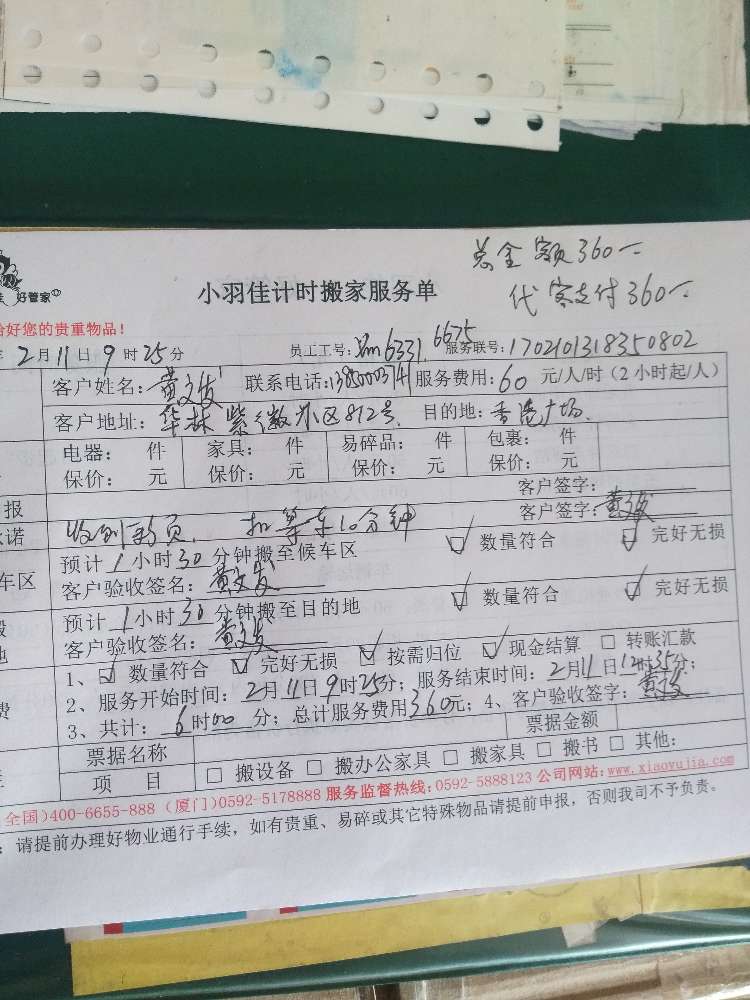 总金额360
代客支付360
好管家
小羽佳计时搬家服务单
好您的贵重物品!
2月11日9时25分 员工工号: 6331, 6675 服务联号:170210131835 0802
客户姓名:黄文发 联系电话: 服务费用:60元/人/时(2小时起/人)
客户地址:华林紫薇小区812号 目的地:香港广场
电器: 件 家具: 件 易碎品: 件 包裹: 件
保价: 元 保价: 元 保价: 元 保价: 元
客户签字:
报
诺 收到 扣等车10分钟 客户签字:黄文发
预计1小时30分钟搬至候车区 数量符合 完好无损
车区 客户验收签名:黄文发
预计1小时30分钟搬至目的地 数量符合 完好无损
地 客户验收签名:黄文发
1、数量符合 完好无损 按需归位 现金结算 转账汇款
2、服务开始时间:2月11日9时25分;服务结束时间:2月11日12时35分;
费 3、共计:6时00分;总计服务费用360元;4、客户验收签字:黄文发
票据名称 票据金额
项 目 搬设备 搬办公家具 搬家具 搬书 其他:
全国)400-6655-888 (厦门)0592-5178888 服务监督热线:0592-5888123 公司网站:www.xiaoyujia.com
:请提前办理好物业通行手续,如有贵重、易碎或其它特殊物品请提前申报,否则我司不予负责。